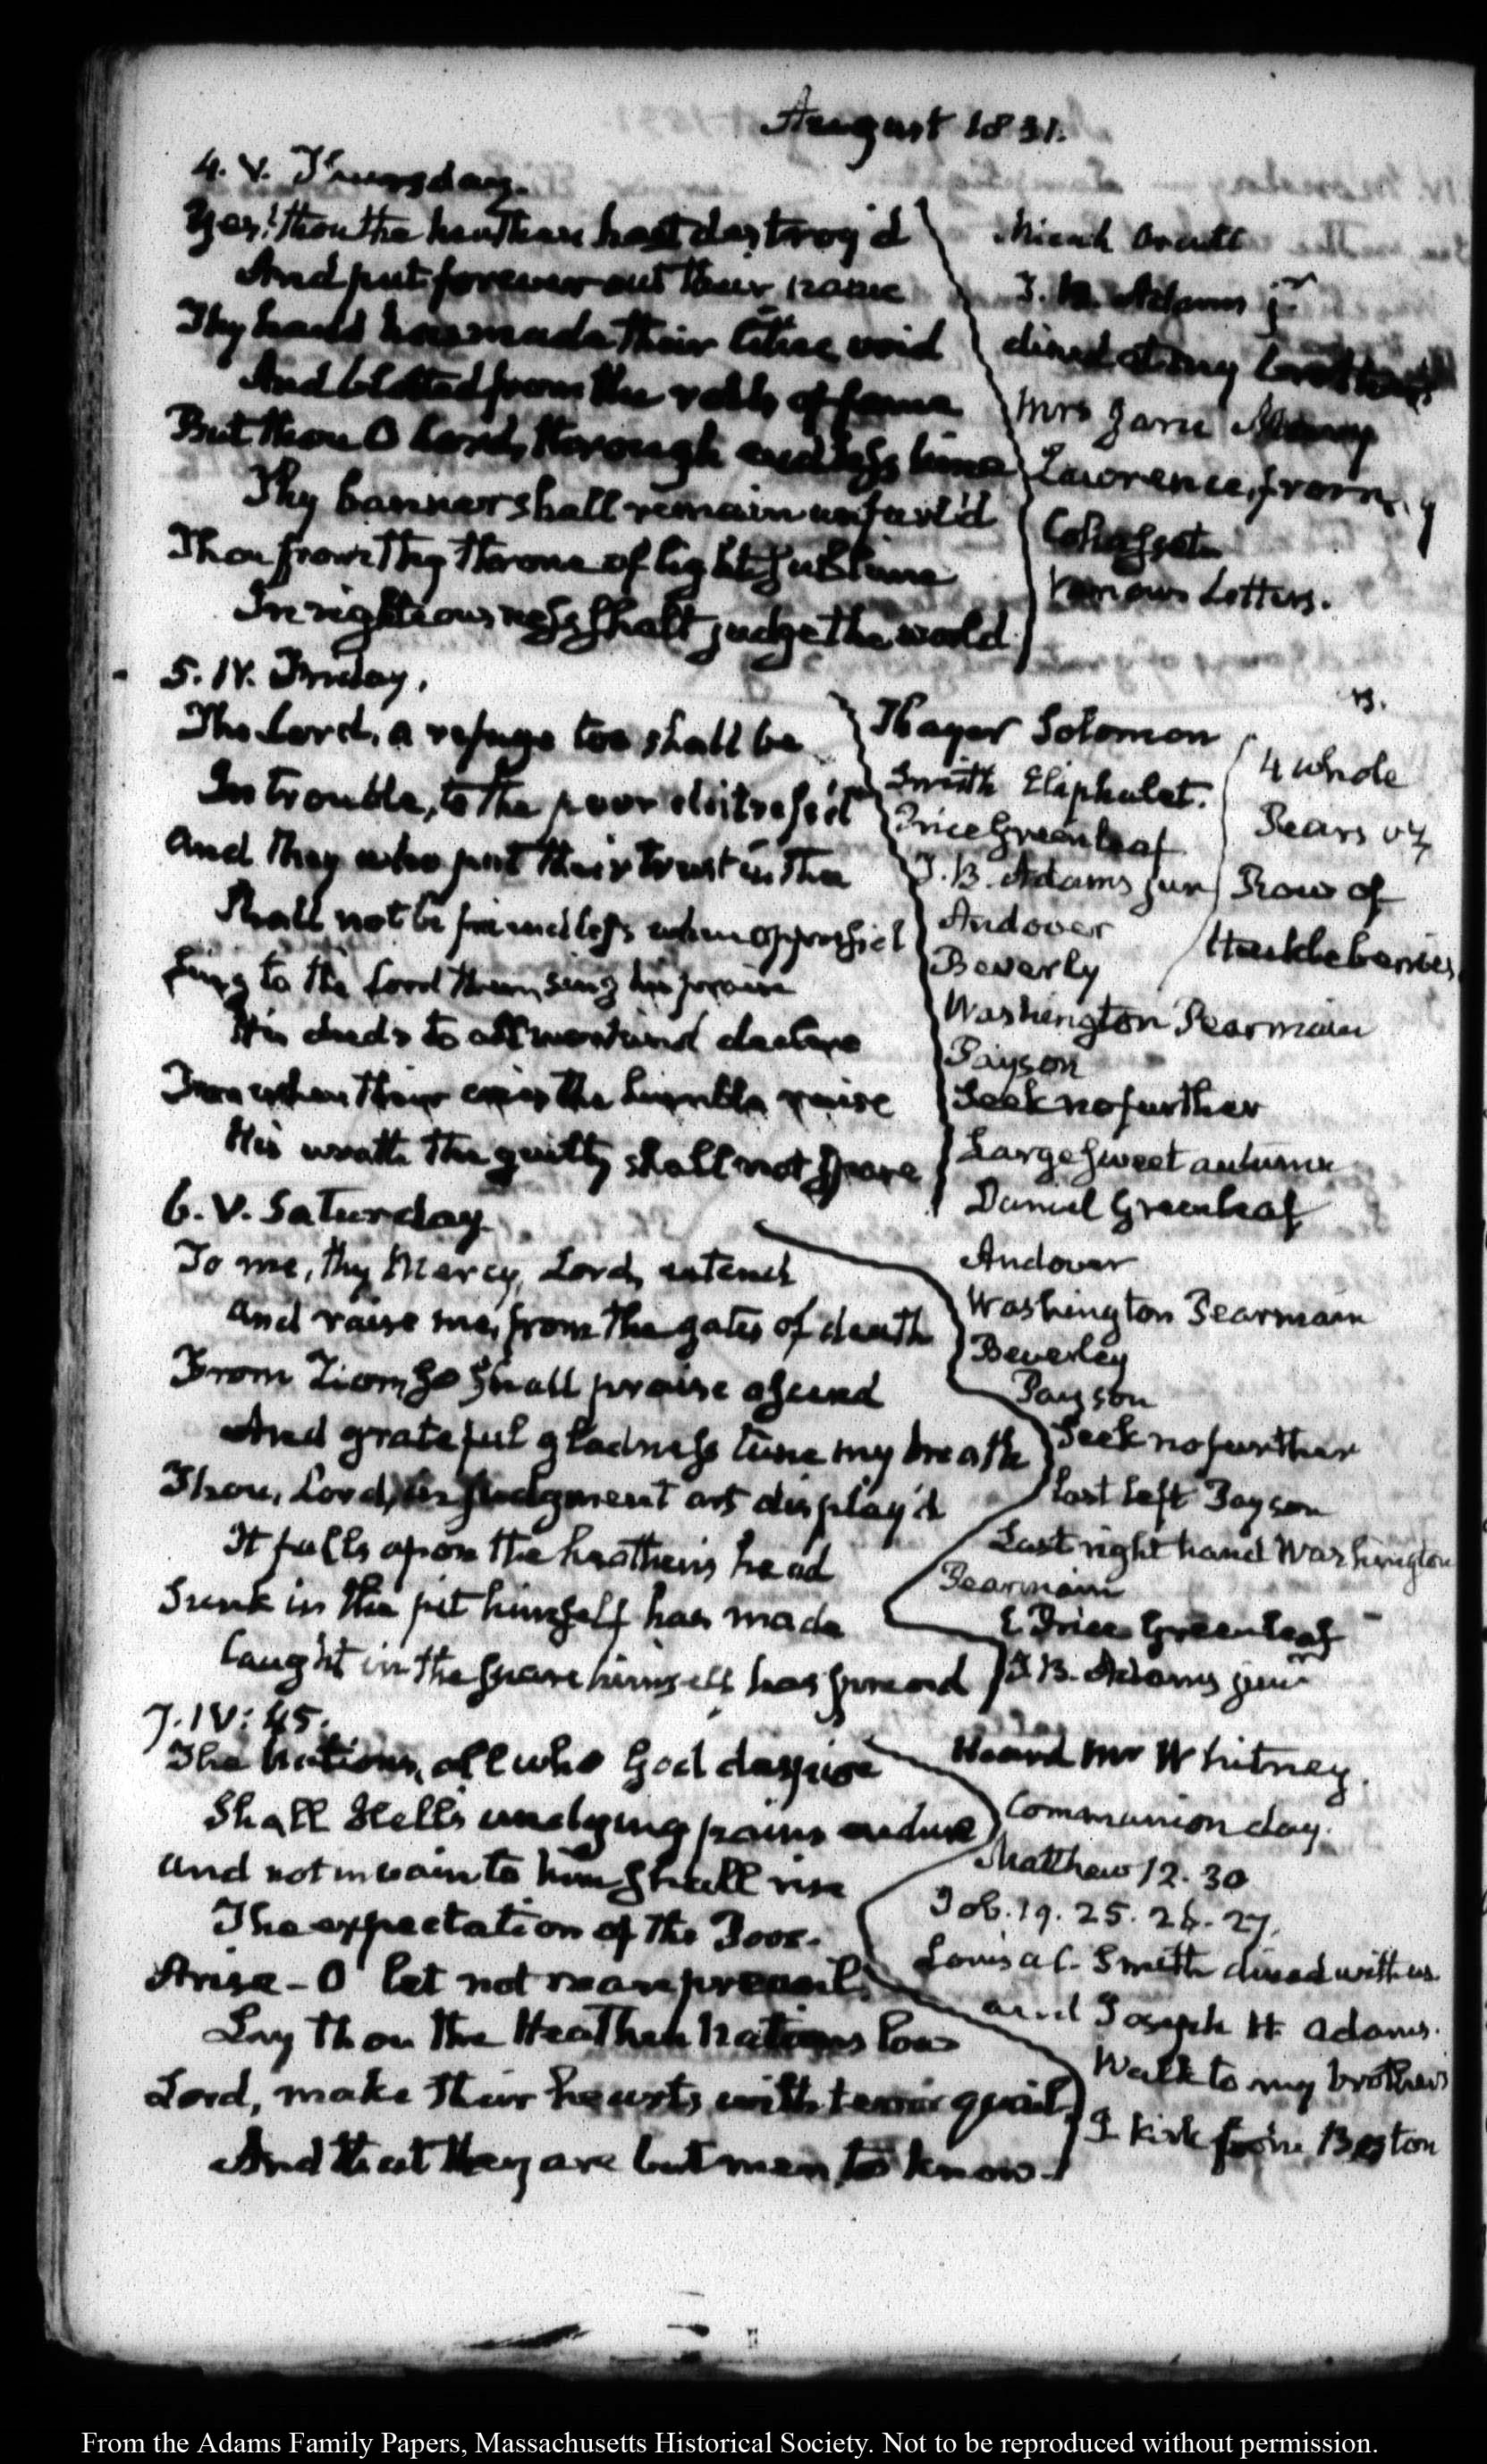 August 1831.
4. V. Thursday.
Yes! thou the heathen hast destroy'd
And put forever out their name
Thy hand has made their cities void
And blotted from the rolls of fame
But thou O Lord, through endless time
Thy banner shall remain unfurl'd
Thou from thy throne of light sublime
In righteousness shalt judge the world.
Micah Orcutt
J. B. Adams jr
dined at my brother's
Mrs Jane
Lawrence, from
Cohasset
Various Letters.
5. IV. Friday.
The Lord, a refuge too shall be
In trouble, to the poor distress'd
And they who put their trust in thee
Shall not be friendless when oppress'd
Sing to the Lord then, sing his praise
His deeds to all mankind declare
For when their cries the humble raise
His wrath the guilty shall not spare
Thayer Solomon
Smith Eliphalet.
Price Greenleaf
J. B. Adams jun
Andover
Beverly
Washington Pearmain
Payson
Seeknofurther
Large Sweet autumn
Daniel Greenleaf
4 whole
Pears
Row of
Huckleberries
6. V. Saturday
To me, thy Mercy, Lord, extend
And raise me, from the gates of death
From Zion, so shall praise ascend
And grateful gladness tune my breath
Thou, Lord, in judgment art display'd
It falls upon the heathen's head
Sunk in the pit himself has made
Caught in the snare himself has spread
Andover
Washington Pearmain
Beverley
Payson
Seeknofurther
last left Payson
Last right hand Washington
Pearmain
E. Price Greenleaf
J. B. Adams junr
7. IV: 45.
The Nations, all who God despise
Shall Hell's undying pains endure
And not in vain to him shall rise
The expectation of the Poor.
Arise - O let not man prevail
Lay thou the Heathen Nations low
Lord, make their hearts with terror quail,
And that they are but men, to know.
Heard Mr Whitney.
Communion day.
Matthew 12. 30
Job. 19. 25. 26. 27.
Louisa C. Smith dined with us.
and Joseph H. Adams.
Walk to my brother's
J. Kirk from Boston
From the Adams Family Papers, Massachusetts Historical Society. Not to be reproduced without permission.